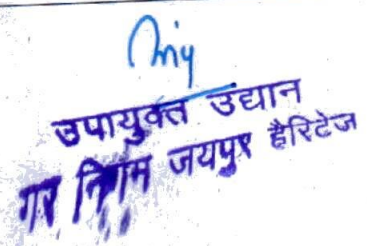 उपायुक्त उद्यान
गर निगम जयपुर हैरिटेज